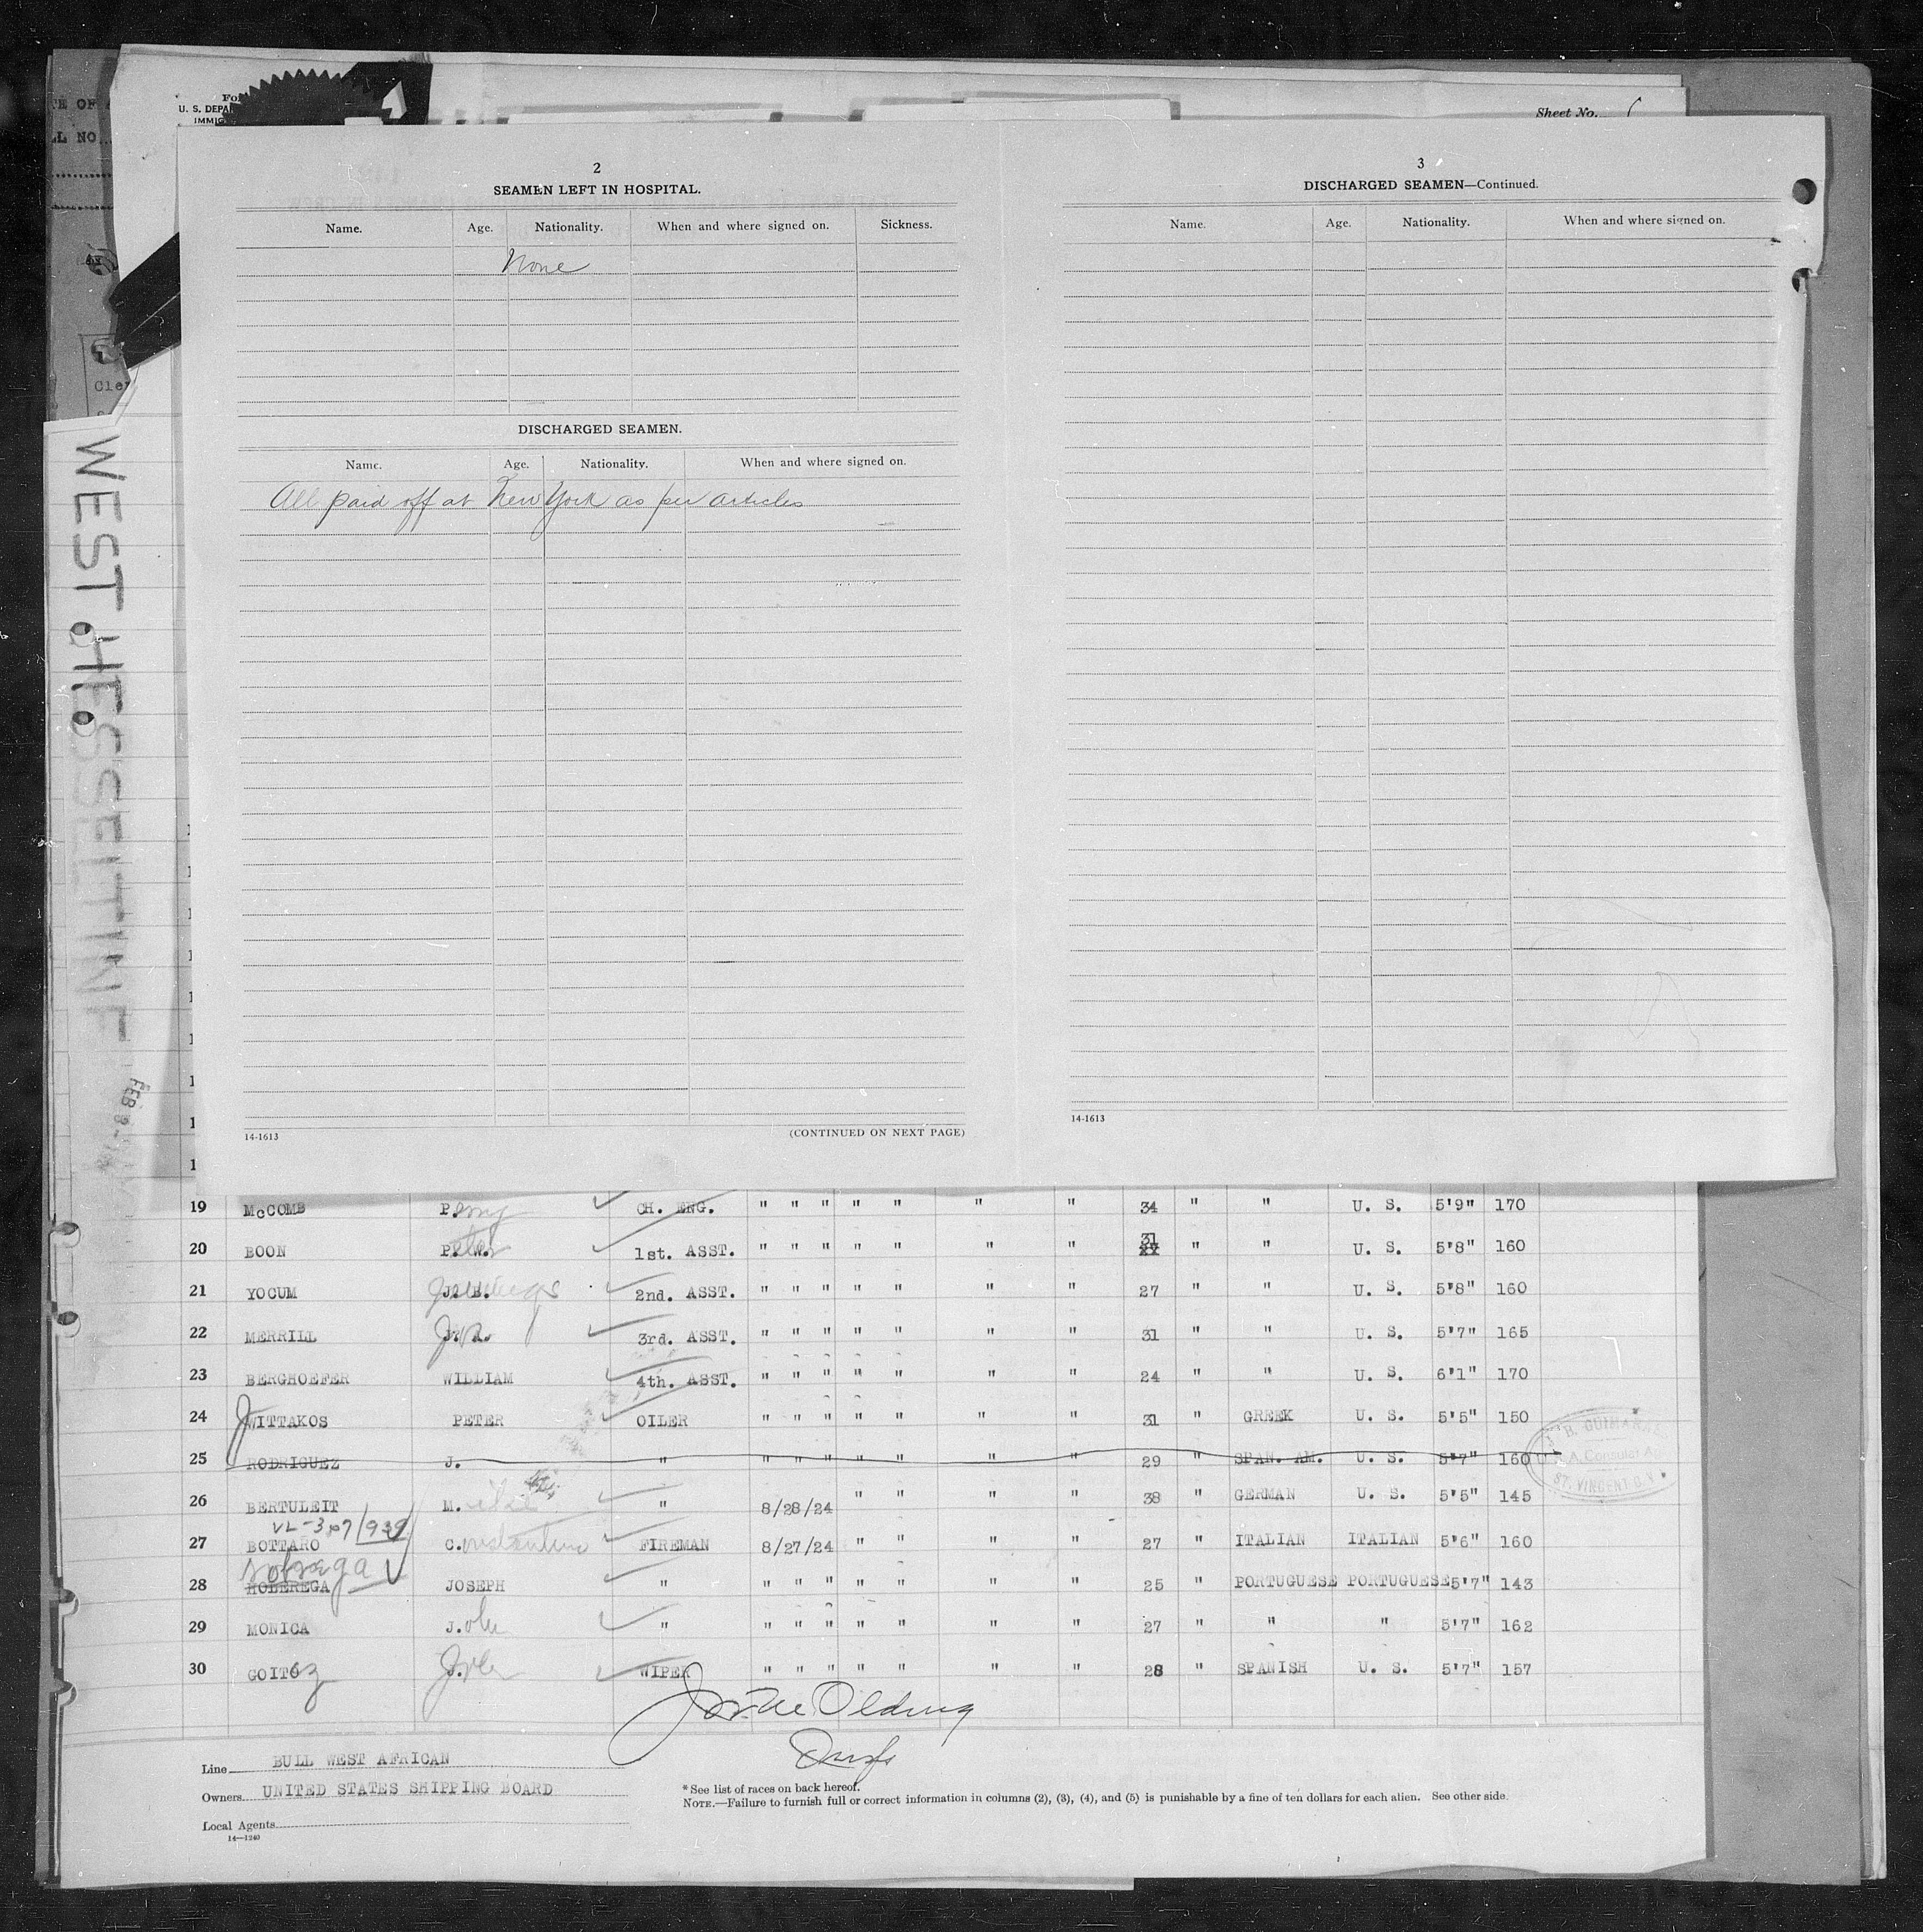 TE OF
LL NO.
U. S. DEPA
IMMIG
Sheet No.
Cle
WEST HESSELTINE
FEB 8
2
SEAMEN LEFT IN HOSPITAL.
Name. Age. Nationality. When and where signed on. Sickness.
None
DISCHARGED SEAMEN.
Name. Age. Nationality. When and where signed on.
All paid off at New York as per articles
14-1613 (CONTINUED ON NEXT PAGE)
3
DISCHARGED SEAMEN—Continued.
Name. Age. Nationality. When and where signed on.
14-1613
19 McCOMB P. CH. ENG. " " " " " " " 34 " " U. S. 5'9" 170
20 BOON P. W. 1st. ASST. " " " " " " " 31 " " U. S. 5'8" 160
21 YOCUM J. B. 2nd. ASST. " " " " " " " 27 " " U. S. 5'8" 160
22 MERRILL J. A. 3rd. ASST. " " " " " " " 31 " " U. S. 5'7" 165
23 BERGHOEFER WILLIAM 4th. ASST. " " " " " " " 24 " " U. S. 6'1" 170
24 WITTAKOS PETER OILER " " " " " " " 31 " GREEK U. S. 5'5" 150
25 RODRIGUEZ J. " " " " " " " " 29 " SPAN. AM. U. S. 5'7" 160
26 BERTULEIT M. " 8/28/24 " " " " 38 " GERMAN U. S. 5'5" 145
VL-307/939
27 BOTTARO Constantino FIREMAN 8/27/24 " " " " 27 " ITALIAN ITALIAN 5'6" 160
28 HOLEREGA JOSEPH " " " " " " " " 25 " PORTUGUESE PORTUGUESE 5'7" 143
29 MONICA J. " " " " " " " " 27 " " " 5'7" 162
30 GOITO J. WIPER " " " " " " " 28 " SPANISH U. S. 5'7" 157
J. B. GUIMARAES
A. Consular A
ST. VINCENT C. V.
Line BULL WEST AFRICAN
Owners UNITED STATES SHIPPING BOARD
Local Agents
14—1240
* See list of races on back hereof.
NOTE.—Failure to furnish full or correct information in columns (2), (3), (4), and (5) is punishable by a fine of ten dollars for each alien. See other side.